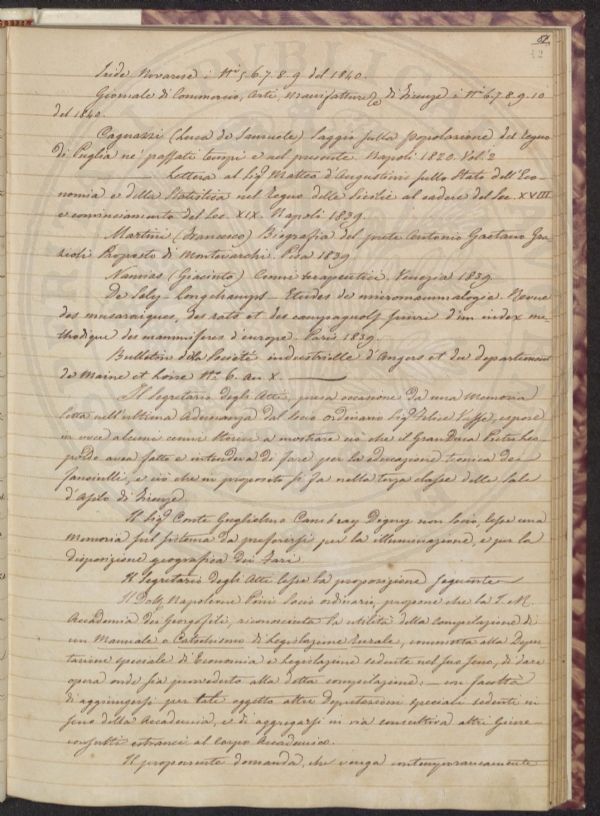 82
Iride Novarese i Nⁱ 5.6.7.8.9 del 1840.
Giornale di Commercio, Arti, Manifatture &c di Firenze i Nⁱ 6.7.8.9.10
del 1840.
Cagnazzi (Luca de Samuele) Saggio sulla Popolazione del Regno
di Puglia ne' passati tempi e nel presente. Napoli 1820. Vol. 2
Lettera al Sigʳ Matteo d'Augustinis sullo Stato dell'Eco-
nomia e della Statistica nel Regno delle Sicilie al cadere del Sec. XVIII
e cominciamento del Sec. XIX. Napoli 1839.
Martini (Francesco) Biografia del prete Antonio Gaetano Gra-
zioli Proposto di Montevarchi. Pisa 1839
Nannias (Giacinto) Cenni terapeutici. Venezia 1839
De Sely-Longchamps - Etudes de micromammalogie. Revue
des musaraignes, des rats et des campagnols suivie d'un index me-
thodique des mammifères d'europe. Paris 1839.
Bulletin de la Societé industrielle d'Angers et du departement
de Maine et Loire Nº 6. An X.
Il Segretario degli Atti, presa occasione da una Memoria
letta nell'ultima Adunanza dal Socio ordinario Sigʳ Felice Vaffé, espose
in voce alcuni cenni storici a mostrare ciò che il GranDuca Pietro Leo-
poldo avea fatto e intendeva di fare per la educazione tecnica dei
fanciulli, e ciò che in proposito si fa nella terza classe delle Sale
d'Asilo di Firenze.
Il Sigʳ Conte Guglielmo Cambray Digny non Socio, lesse una
Memoria sul sistema da preferirsi per la illuminazione, e per la
disposizione geografica dei Fari
Il Segretario degli Atti lesse la proposizione seguente
Il Dottʳ Napoleone Pini Socio ordinario, propone che la I. e R.
Accademia dei Georgofili, riconosciuta la utilità della compilazione di
un Manuale o Catechismo di Legislazione Rurale, commetta alla Depu-
tazione speciale di Economia e Legislazione sedente nel suo seno, di dare
opera onde sia provveduto alla detta compilazione; - con facoltà
di aggiungersi per tale oggetto altre Deputazioni speciali sedenti in
seno della Accademia, e di aggregarsi in via consultiva altri Giure-
consulti estranei al Corpo Accademico.
Il proponente domanda, che venga contemporaneamente